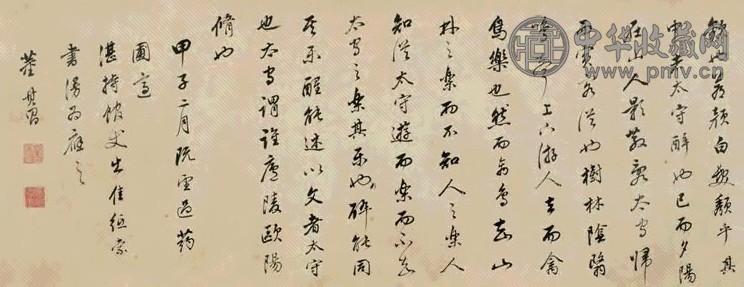 歡也蒼顏白髮頹乎其
中者太守醉也已而夕陽
在山人影散亂太守歸
而賓客從也樹林陰翳
鳴聲上下游人去而禽
鳥樂也然而禽鳥知山
林之樂而不知人之樂人
知從太守遊而樂而不知
太守之樂其樂也醉能同
其樂醒能述以文者太守
也太守謂誰廬陵歐陽
脩也
甲子二月阮過
圃
湛持館丈出佳紙索
書漫為應之
董其昌
中华收藏网
www.pmv.cn